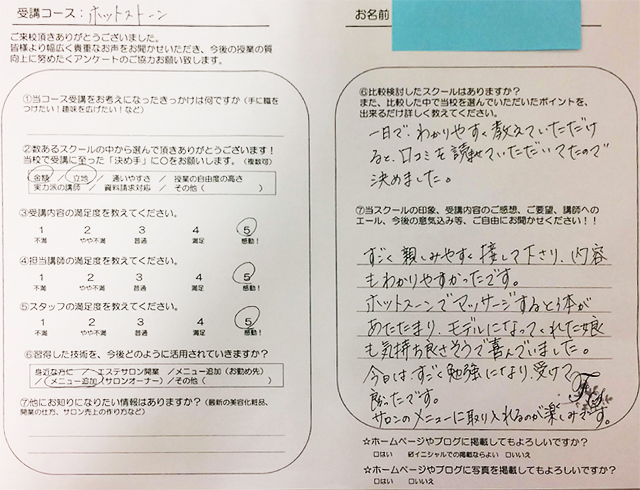 受講コース：ホットストーン
ご来校頂きありがとうございました。
皆様より幅広く貴重なお声をお聞かせいただき、今後の授業の質
向上に努めたくアンケートのご協力お願い致します。
①当コース受講をお考えになったきっかけは何ですか（手に職を
つけたい！趣味を広げたい！など）
②数あるスクールの中から選んで頂きありがとうございます！
当校で受講に至った「決め手」に〇をお願いします。（複数可）
金額 ／ 立地 ／ 通いやすさ ／ 授業の自由度の高さ
実力派の講師 ／ 資料請求対応 ／ その他（ ）
③受講内容の満足度を教えてください。
1 2 3 4 5
不満 やや不満 普通 満足 感動！
④担当講師の満足度を教えてください。
1 2 3 4 5
不満 やや不満 普通 満足 感動！
⑤スタッフの満足度を教えてください。
1 2 3 4 5
不満 やや不満 普通 満足 感動！
⑥習得した技術を、今後どのように活用されていきますか？
身近な方に ／ エステサロン開業 ／ メニュー追加（お勤め先）
／ メニュー追加（サロンオーナー）／ その他（ ）
⑦他にお知りになりたい情報はありますか？（最新の美容化粧品、
開業の仕方、サロン売上の作り方など）
お名前
⑥比較検討したスクールはありますか？
また、比較した中で当校を選んでいただいたポイントを、
出来るだけ詳しく教えてください。
一日で、わかりやすく教えていただけ
ると、口コミを読ませていただいてたので
決めました。
⑦当スクールの印象、受講内容のご感想、ご要望、講師への
エール、今後の意気込み等、ご自由にお聞かせください！！
すごく親しみやすく接して下さり、内容
もわかりやすかったです。
ホットストーンでマッサージすると体が
あたたまり、モデルになってくれた娘
も気持ち良さそうで喜んでいました。
今日は、すごく勉強になり、受けて
良かったです。
サロンのメニューに取り入れるのが楽しみです。
☆ホームページやブログに掲載してもよろしいですか？
□はい ☑イニシャルでの掲載ならよい □いいえ
☆ホームページやブログに写真を掲載してもよろしいですか？
□はい □いいえ